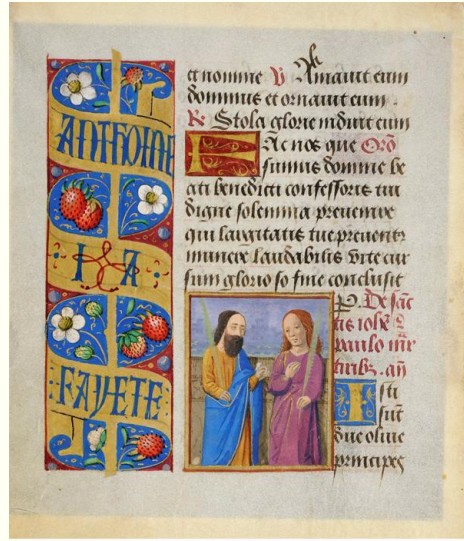 ANTHOINE
I A
FAYETE
et nomine V Amauit eum
dominus et ornauit eum
R Stola glorie induit eum
Fac nos que Oro
sumus domine be
ati benedicti confessoris tui
digne solemnia preuenire
qui largitatis tue preuenitur
munere laudabilis vite cur
sum glorio so fine conclusit
De sanc
tis iohe
paulo mr
tiribz. an
Isti
sunt
due oliue
principes